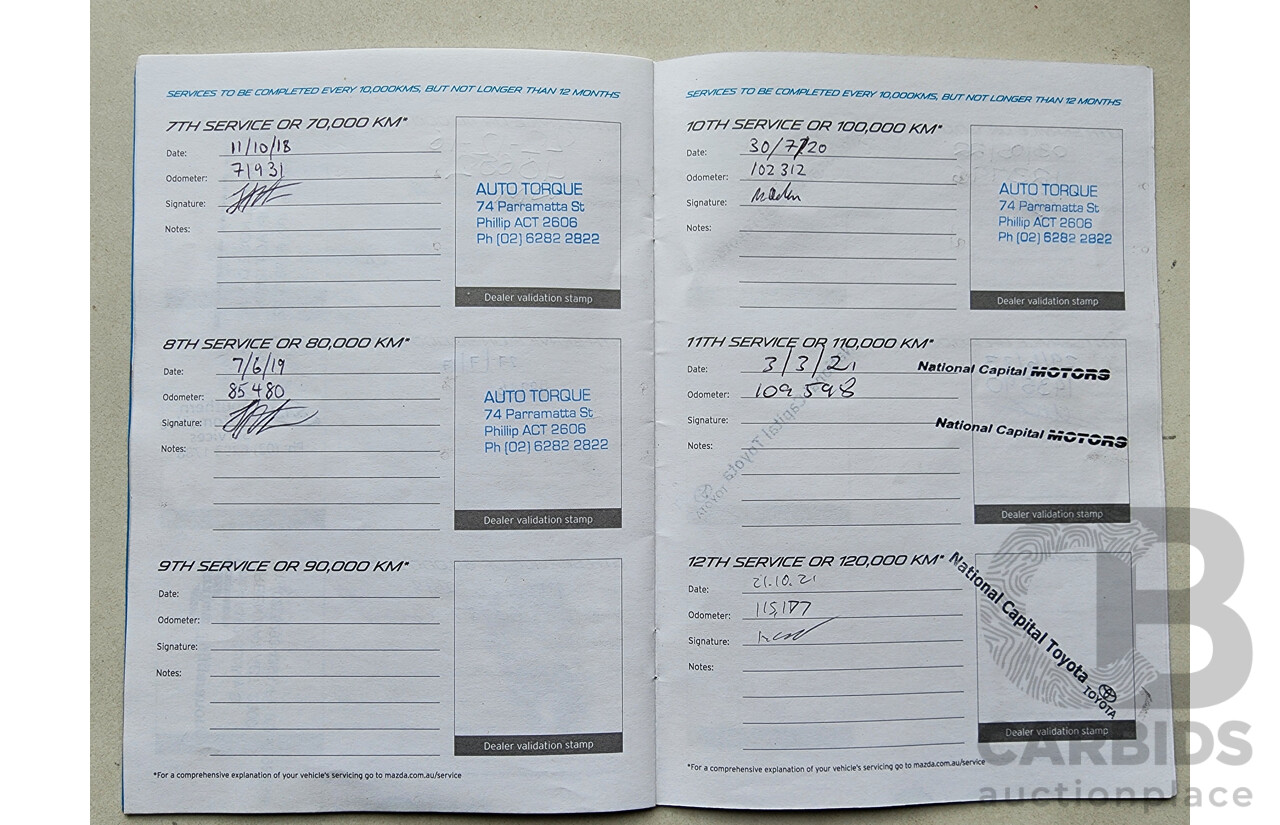 SERVICES TO BE COMPLETED EVERY 10,000KMS, BUT NOT LONGER THAN 12 MONTHS
7TH SERVICE OR 70,000 KM*
Date: 11/10/18
Odometer: 71931
Signature:
Notes:
AUTO TORQUE
74 Parramatta St
Phillip ACT 2606
Ph (02) 6282 2822
Dealer validation stamp
8TH SERVICE OR 80,000 KM*
Date: 7/6/19
Odometer: 85480
Signature:
Notes:
AUTO TORQUE
74 Parramatta St
Phillip ACT 2606
Ph (02) 6282 2822
Dealer validation stamp
9TH SERVICE OR 90,000 KM*
Date:
Odometer:
Signature:
Notes:
Dealer validation stamp
*For a comprehensive explanation of your vehicle's servicing go to mazda.com.au/service
SERVICES TO BE COMPLETED EVERY 10,000KMS, BUT NOT LONGER THAN 12 MONTHS
10TH SERVICE OR 100,000 KM*
Date: 30/7/20
Odometer: 102312
Signature:
Notes:
AUTO TORQUE
74 Parramatta St
Phillip ACT 2606
Ph (02) 6282 2822
Dealer validation stamp
11TH SERVICE OR 110,000 KM*
Date: 3/3/21
Odometer: 109598
Signature:
Notes:
National Capital MOTORS
National Capital MOTORS
Dealer validation stamp
12TH SERVICE OR 120,000 KM*
Date: 21.10.21
Odometer: 115,177
Signature:
Notes:
National Capital Toyota
TOYOTA
Dealer validation stamp
*For a comprehensive explanation of your vehicle's servicing go to mazda.com.au/service
CARBIDS
auctionplace